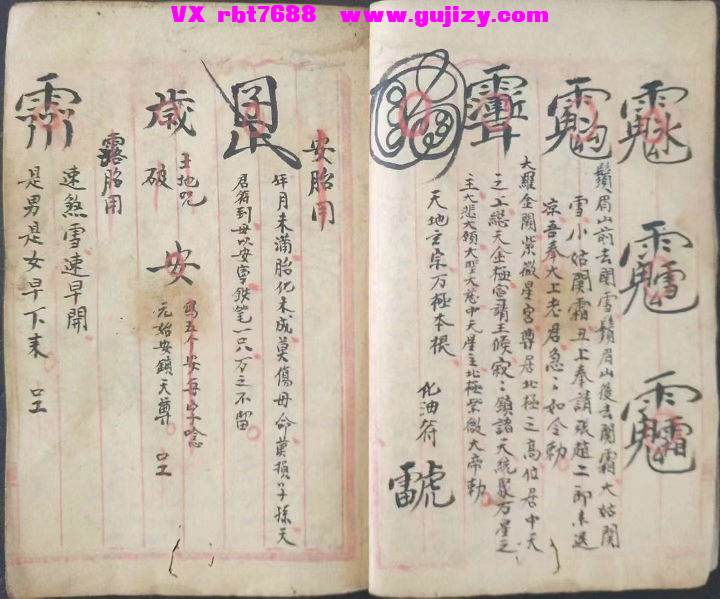 VX rbt7688 www.gujizy.com
鬚眉山前去開雪鬚眉山後去開霜大姑関
雪小姑関霜丑上奉請張趙二郎來退
凉吾奉太上老君急〻如令勅
大羅金闕紫微星宮尊居北極之高位居中天
之上總天金極宮請王候寂〻鎮諸天統聚万星之
主大悲大願大聖大慈中天星主北極紫微大帝勅
天地玄宗万極本根
化油符
安胎用
年月未滿胎化未成莫傷母命莫損子孫天
君符到母以安寧鉄笔一只万之不留
歲破
土地咒
安
寫五个安每字唸
元始安鎮天尊
露胎用
速煞雪速早開
是男是女早下来